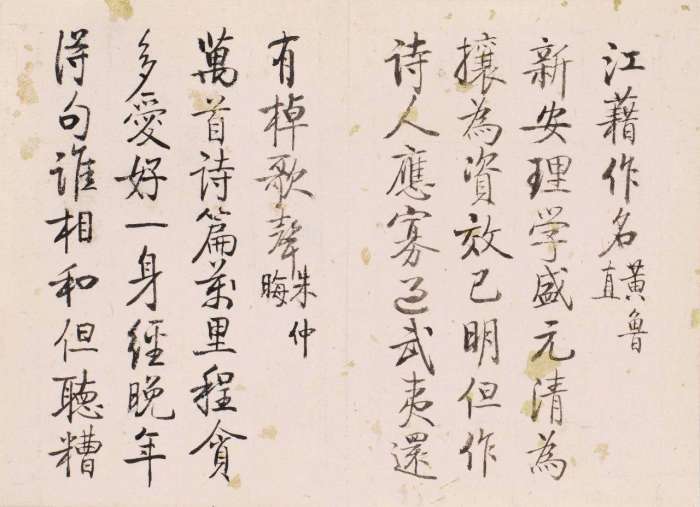 江藉作名
黃魯
直
新安理学盛元清為
攘為資效已明但作
诗人應寡过武夷還
有棹歌聲
朱仲
晦
萬首诗篇萬里程貪
多愛好一身經晚年
得句谁相和但聽糟